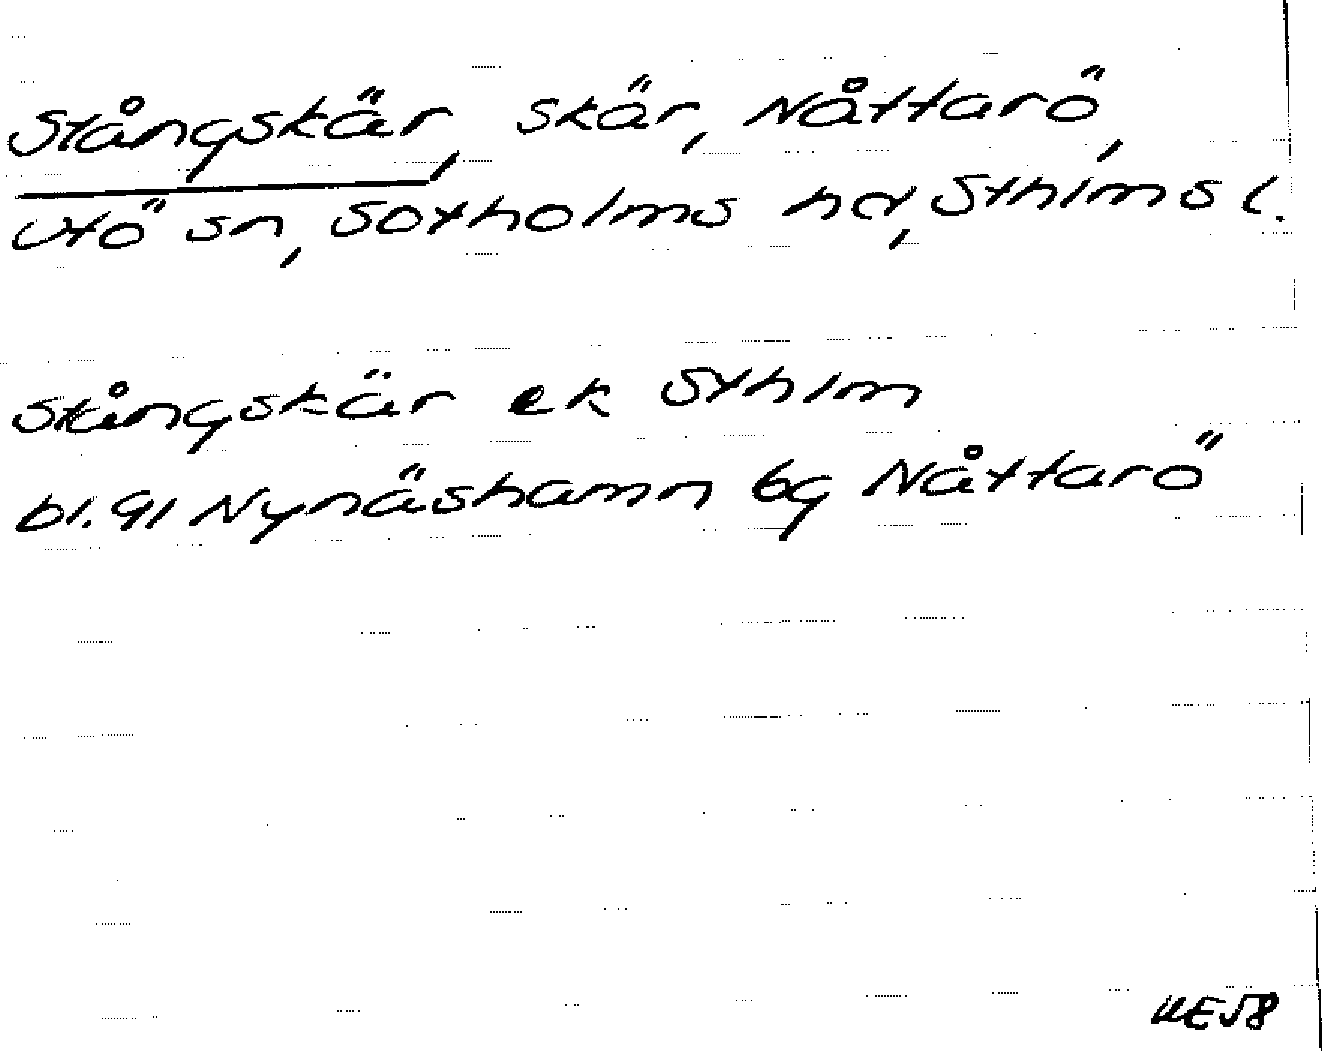 Stångskär, skär, Nåttarö,
Utö sn, Sotholms hd, Sthlms l.
Stångskär ek Sthlm
bl. 91 Nynäshamn bg Nåttarö